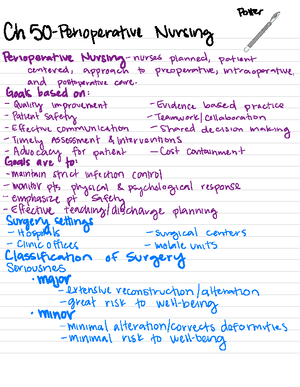 Potter
Ch 50-Perioperative Nursing
Perioperative Nursing - nurses planned, patient
centered, approach to preoperative, intraoperative,
and postoperative care.
Goals based on:
- Quality improvement - Evidence based practice
- Patient safety - Teamwork/collaboration
- Effective communication - Shared decision making
- Timely Assessment & interventions
- Advocacy for patient - Cost containment
Goals are to:
- maintain strict infection control
- monitor pts physical & psychological response
- emphasize pt safety
- Effective teaching/discharge planning
Surgery settings
- Hospitals - Surgical centers
- Clinic offices - mobile units
Classification of surgery
Seriousness
• major
- extensive reconstruction/alteration
- great risk to well-being
• minor
- minimal alteration/corrects deformities
- minimal risk to well-being